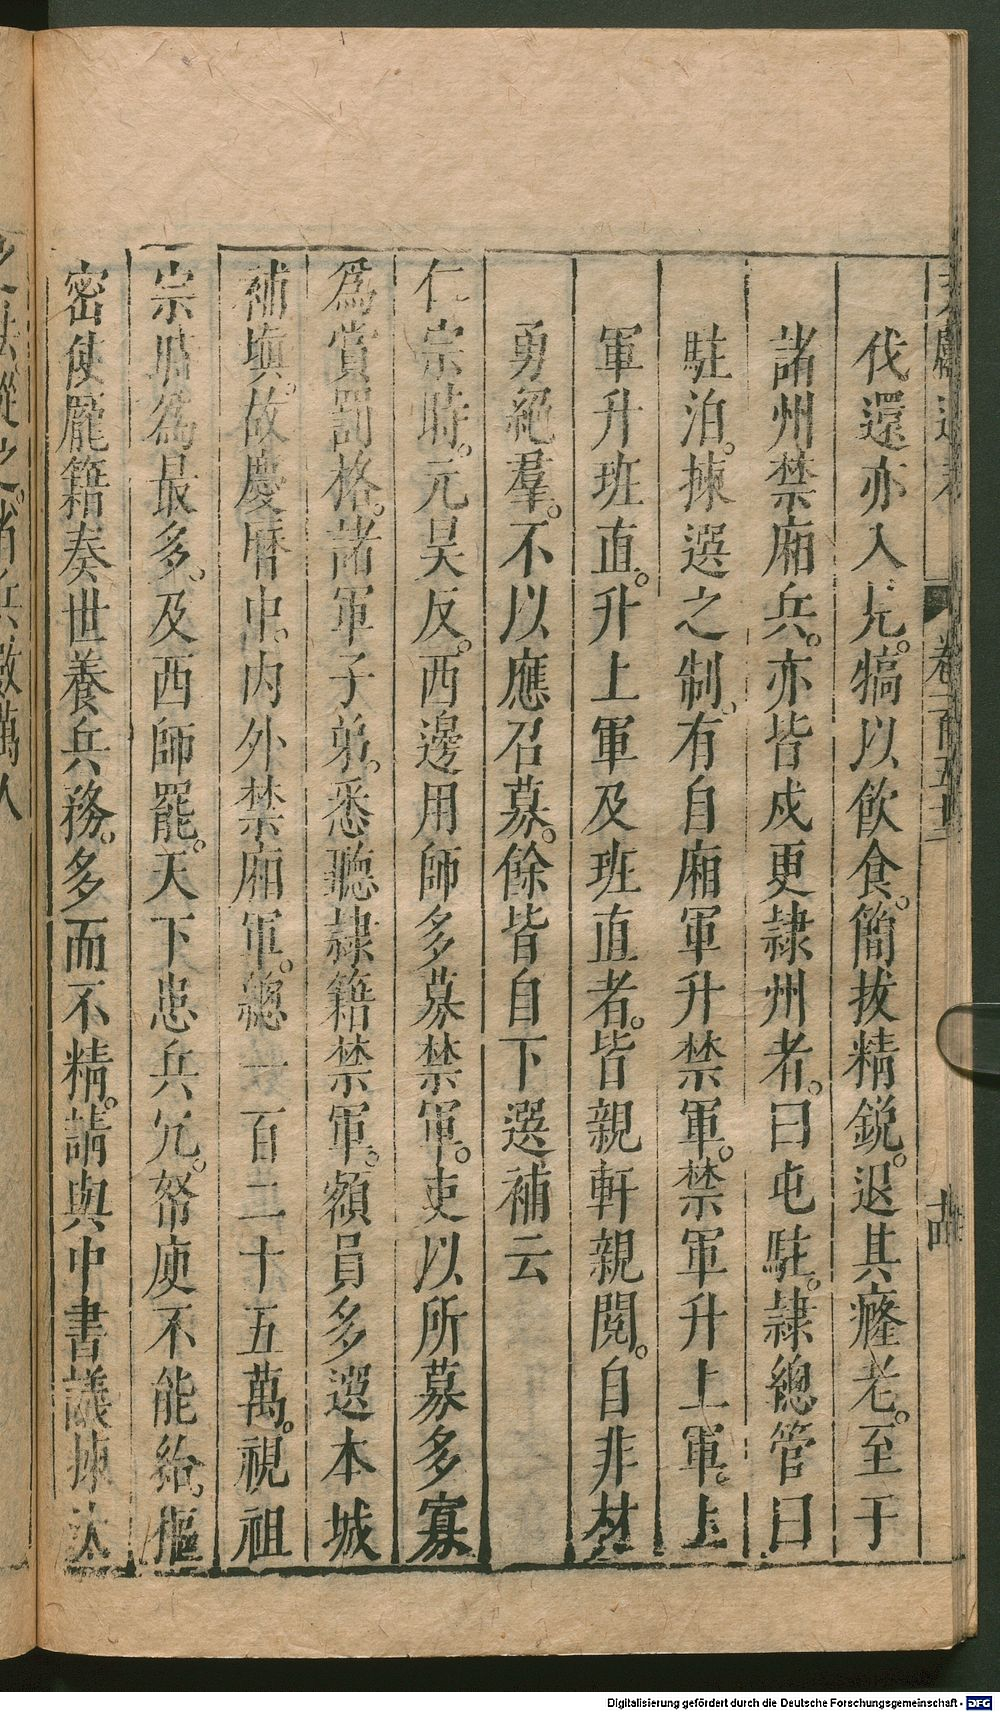 伐還亦入見。犒以飲食。簡拔精鋭。退其癃老。至于
諸州禁廂兵。亦皆戍更隷州者。曰屯駐。隷總管曰
駐泊。揀選之制。有自廂軍升禁軍。禁軍升上軍。上
軍升班直。升上軍及班直者。皆親軒親閲。自非材
勇絕羣。不以應召募。餘皆自下選補云
仁宗時。元昊反。西邊用師多募禁軍。吏以所募多寡
爲賞罰格。諸軍子弟。悉聽隷籍禁軍。額員多選本城
補塡。故慶曆中。内外禁廂軍。總一百二十五萬。視祖
宗時爲最多。及西師罷。天下患兵冗。帑庾不能給。樞
密使龐籍奏世養兵務。多而不精。請與中書議揀汰
之法。從之。省兵數萬人
卷一百五十二
Digitalisierung gefördert durch die Deutsche Forschungsgemeinschaft - DFG